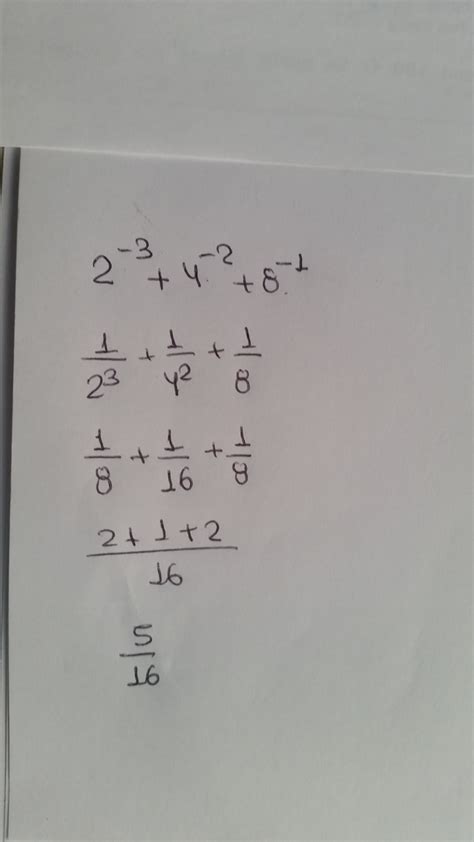 2⁻³ + 4⁻² + 8⁻¹
1/2³ + 1/4² + 1/8
1/8 + 1/16 + 1/8
2 + 1 + 2/16
5/16